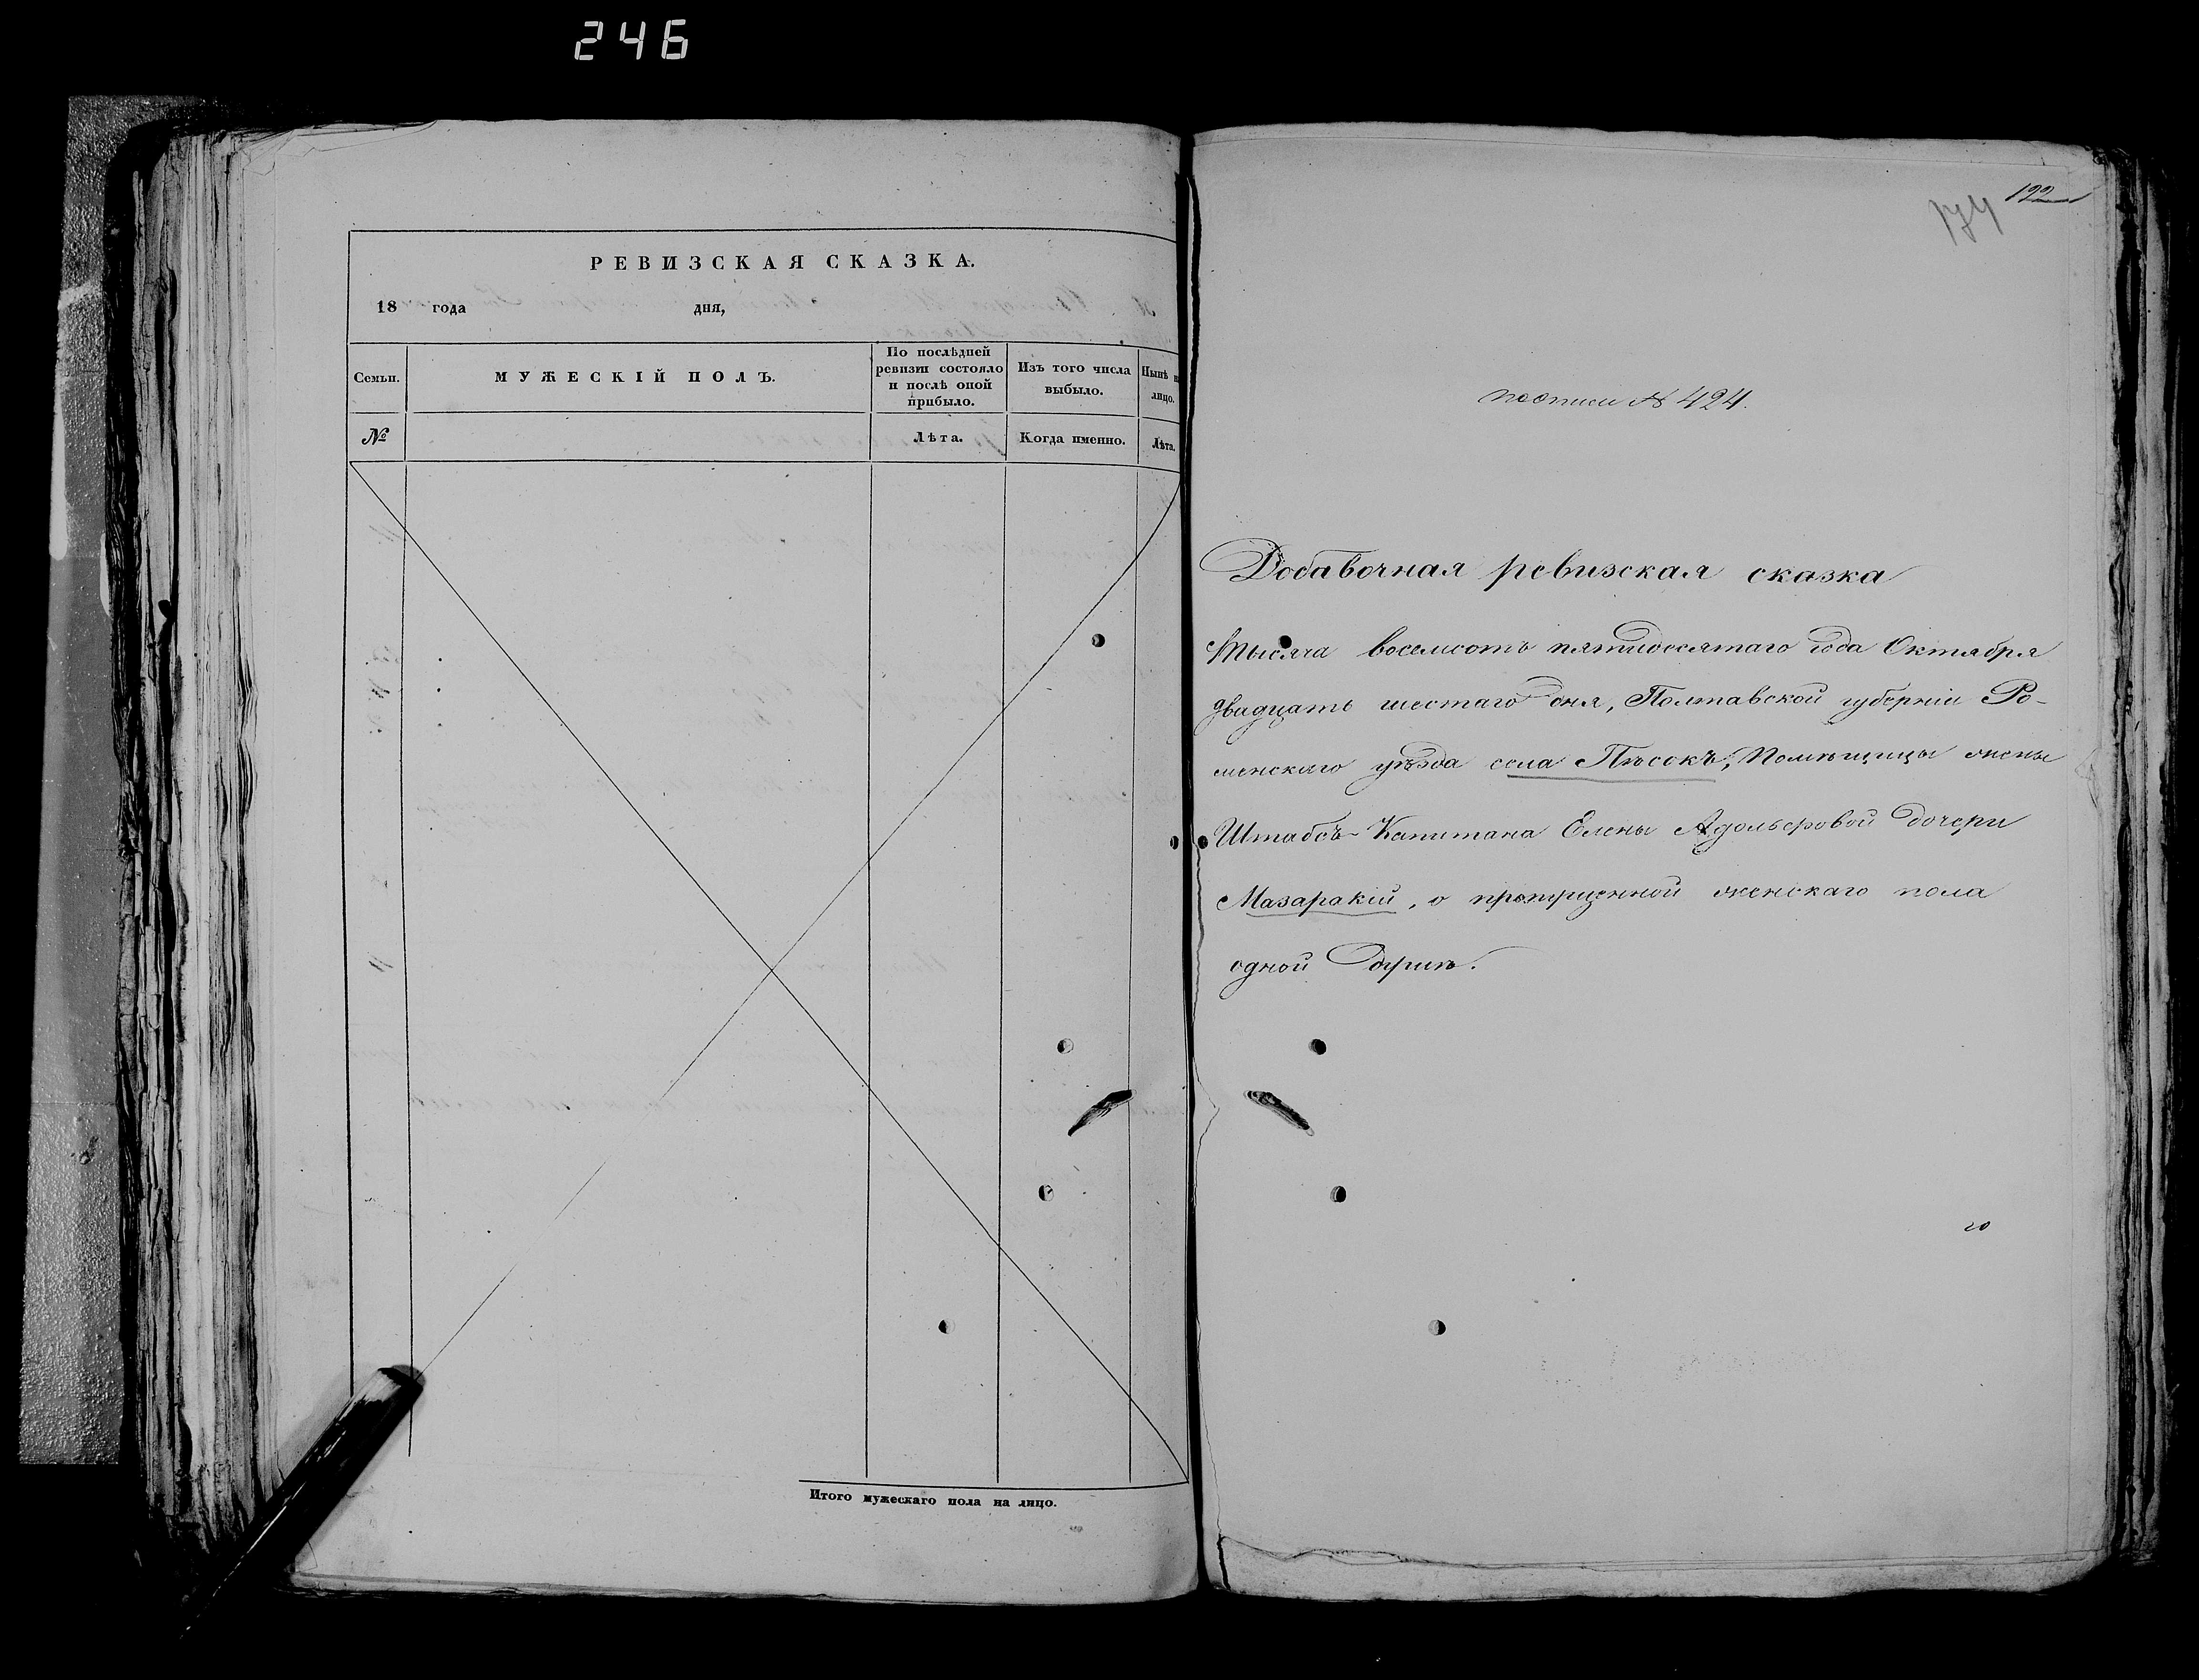 246
РЕВИЗСКАЯ СКАЗКА.
18 года дня,
Семьи.
МУЖЕСКІЙ ПОЛЪ.
По послѣдней
ревизіи состояло
и послѣ оной
прибыло.
Изъ того числа
выбыло.
Нынѣ н
лицо.
№
Лѣта.
Когда именно.
Лѣта.
Итого мужескаго пола на лицо.
122
174
пописи № 424.
Добавочная ревизская сказка
Тысяча восемсотъ пятидесятаго года Октября
двадцать шестаго дня, Полтавской губерніи Ро-
менскаго уѣзда села Пѣсокъ, Помѣщицы жены
Штабсъ-Капитана Елены Адольфровой дочери
Мазаракій, о пропущенной женскаго пола
одной душѣ.